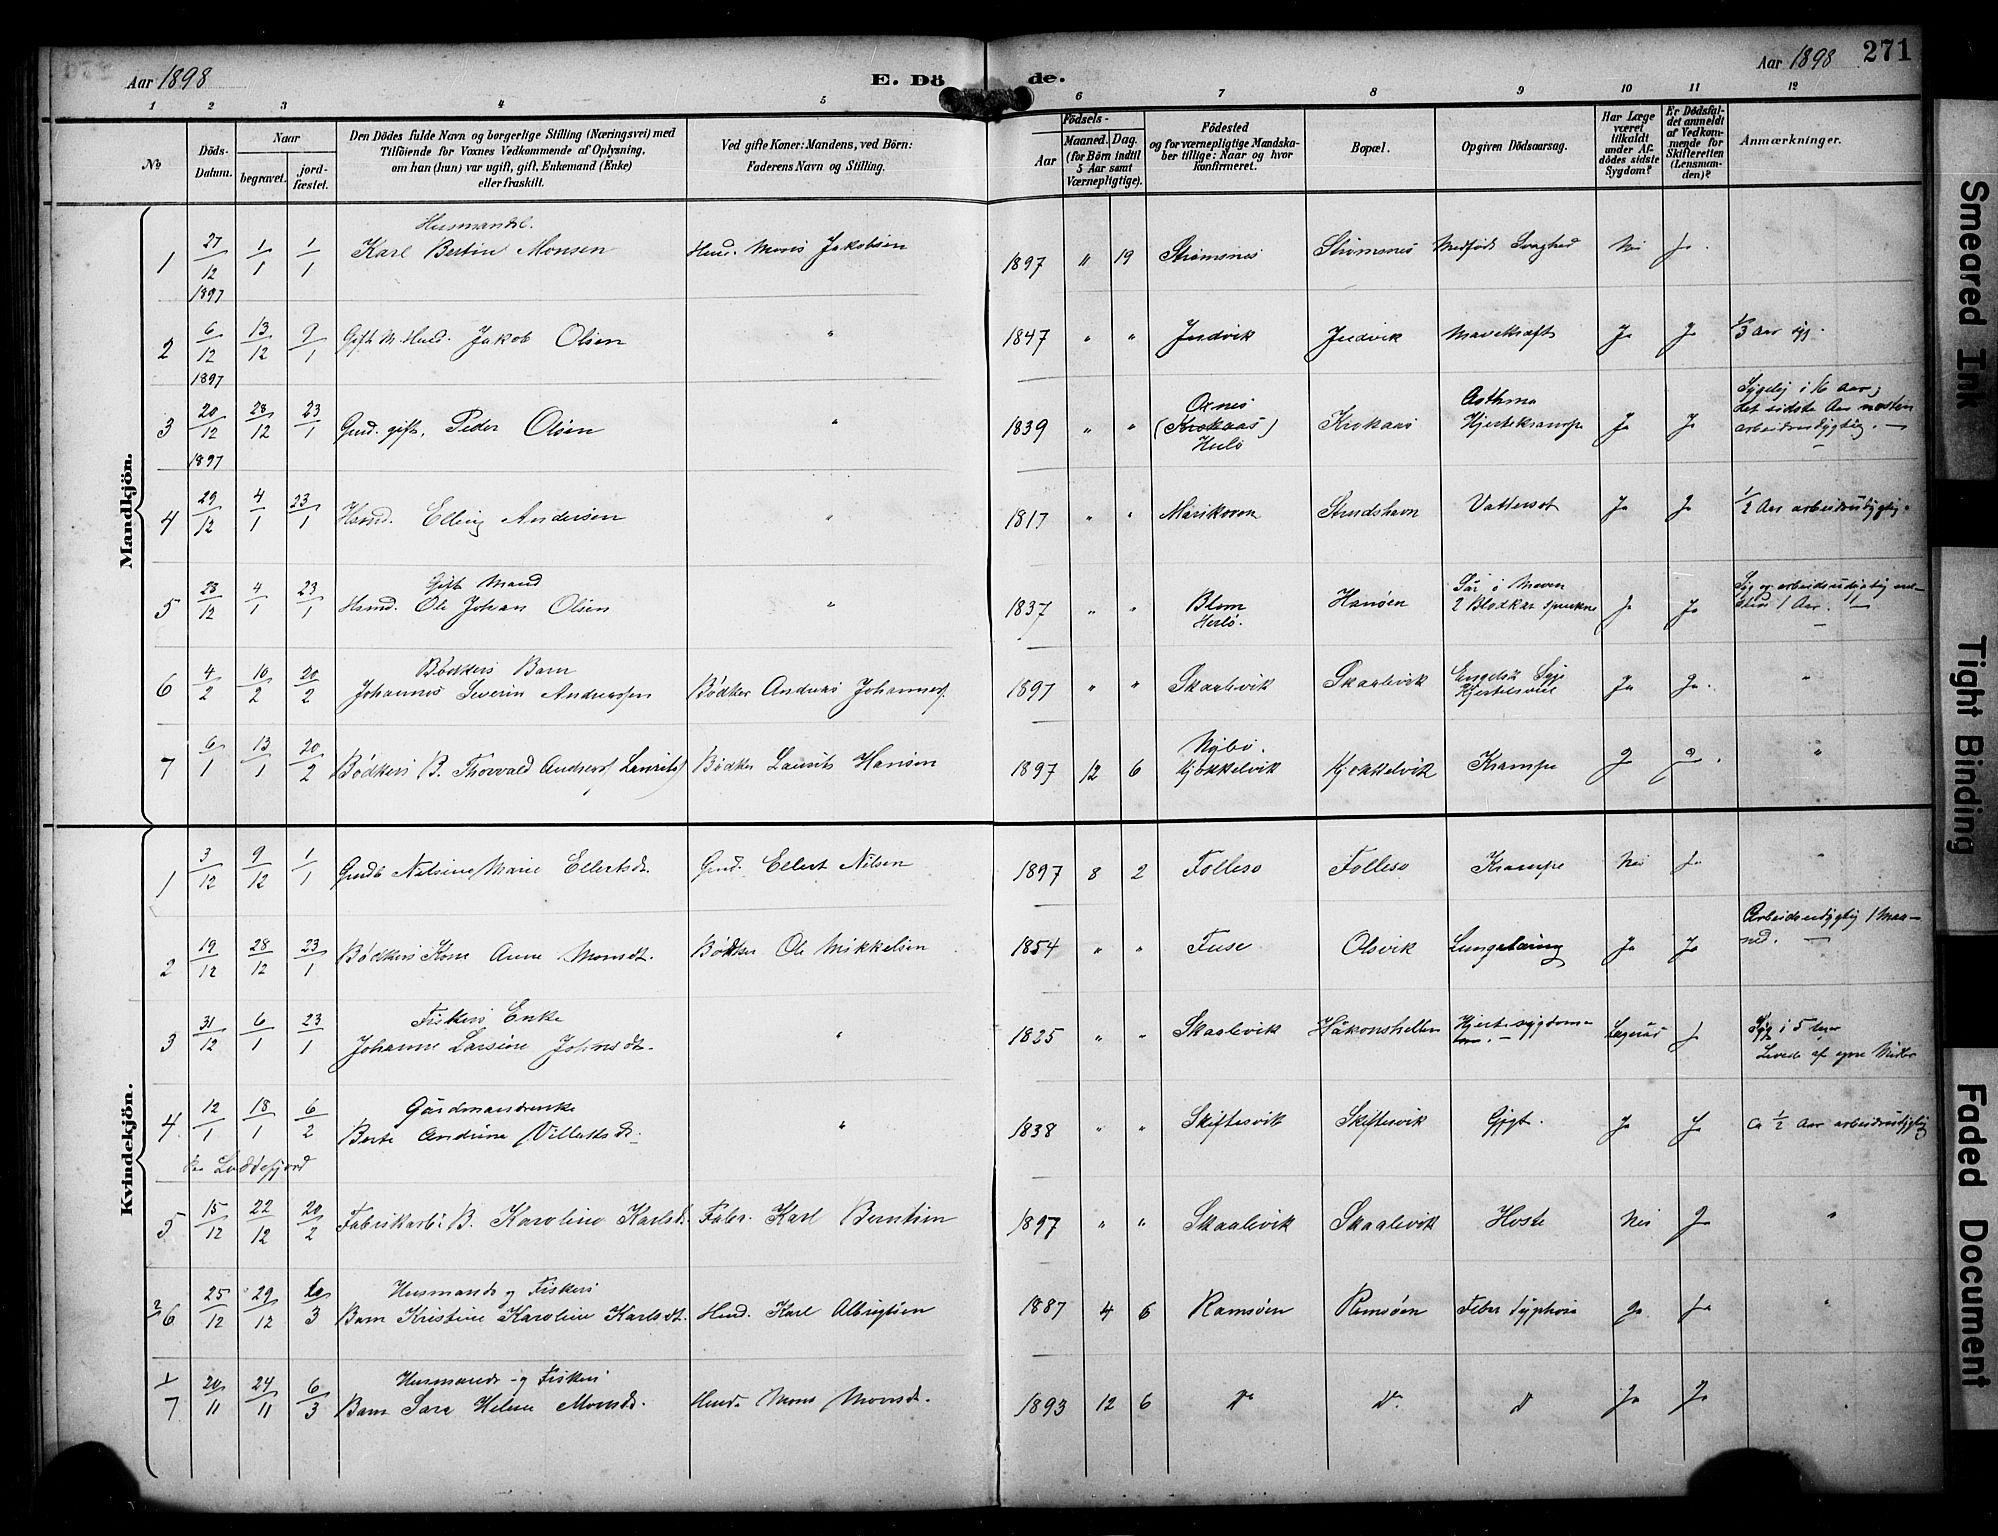 Aar 1898
E. Döde.
Aar 1898
271
1 2 3 4 5 6 7 8 9 10 11 12
No
Döds-Datum.
Naar
begravet.
jord-fæstet.
Den Dödes fulde Navn og borgerlige Stilling (Næringsvei) med
Tilföiende for Voxnes Vedkommende af Oplysning,
om han (hun) var ugift, gift, Enkemand (Enke)
eller fraskilt.
Ved gifte Koner: Mandens, ved Börn:
Faderens Navn og Stilling.
Födsels-
Aar
Maaned. Dag.
(for Börn indtil
5 Aar samt
Værnepligtige).
Födested
og for værnepligtige Mandska-
ber tillige: Naar og hvor
konfirmeret.
Bopæl.
Opgiven Dödsaarsag.
Har Læge
været
tilkaldt
under Af-
dödes sidste
Sygdom?
Er Dödsfal-
det anmeldt
af Vedkom-
mende for
Skifteretten
(Lensman-
den)?
Anmærkninger.
Mandkjön.
Husmandsb.
1 27/12 1/1 1/1 Karl Bertin Monsen Husd. Mons Jakobsen 1897 " 19 Strømsnes Strømsnes Medfødt Svaghed Nei Ja.
1897
2 6/12 13/12 9/1 Gift M. Husd. Jakob Olsen " 1847 " " Indvik Indvik Mavekræft Ja Ja 1/3 Aar syg.
1897
3 20/12 28/12 23/1 Grud. gift. Peder Olsen " 1839 " " Oxnes (Krokaas) Herlø Krokaas Asthma Hjertekrampe Ja Ja Sygelig i 16 Aar; det sidste Aar næsten arbeidsudygtig. —
1897
4 29/12 4/1 23/1 Hsmd. Elling Andersen " 1817 " " Strudshavn Vattersot Ja Ja 1/2 Aar arbeidsudygtig.
Gift Mand
5 23/12 4/1 23/1 Hsmd. Ole Johan Olsen " 1837 " " Blom Herlø. Hanøen Sår i Maven 2 Blodkar Ja Ja Syg og arbeidsudygtig 1 Aar. —
Bødkers Barn
6 4/2 10/2 20/2 Johannes Severin Andreassen Bødker Andreas Johannes. 1897 " " Skaalevik Skaalevik Engelsk Syge Ja Ja. "
7 6/1 13/1 20/2 Bødkers B. Thorvald Andreas Laurits Bødker Laurits Hansen 1897 12 6 Nybø. Kjøkkelvik Kjøkkelvik Krampe J J. "
Kvindekjön.
1 3/12 9/12 1/1 Grudb Nilsine Marie Ellertsdt. Grud. Ellert Nilsen 1897 8 2 Follesø Follesø Krampe Nei Ja "
2 19/12 28/12 23/1 Bødkers Kone Anne Monsdt. Bødker Ole Mikkelsen 1854 " " Fuse Olsvik Lungetæring Ja Ja Arbeidsudygtig 1 Maaned. —
Fiskers Enke
3 31/12 6/1 23/1 Johanne Larsine Johnsdt. " 1825 " " Skaalevik Håkonshellen Hjertesygdom — J Syg i 5 Levede af egne Midler
Gårdmandsenke
4 12/1 18/1 6/2 Berte Andrine Villatsdt. " 1838 " " Skiftesvik Skiftesvik Gigt. Ja Ja Ca 1/2 Aar arbeidsudygtig
Paa Loddefjord
5 15/12 22/12 20/2 Fabrikarb: B. Karoline Karlsd. Fabr. Karl Berntsen 1897 " " Skaalevik Skaalevik Hoste Nei Ja "
Husmands og Fiskers
2/6 25/12 29/12 6/3 Barn Kristine Karoline Karlsdt. Husd. Karl Albrigtsen 1887 4 6 Ramsøen Ramsøen Feber typhoia Ja. Ja "
Husmands og Fiskers
1/7 20/11 24/11 6/3 Barn Sara Helene Monsdt. Husd. Mons Monsen. 1893 12 6 Do Do. Do Ja Ja
Smeared Ink
Tight Binding
Faded Document